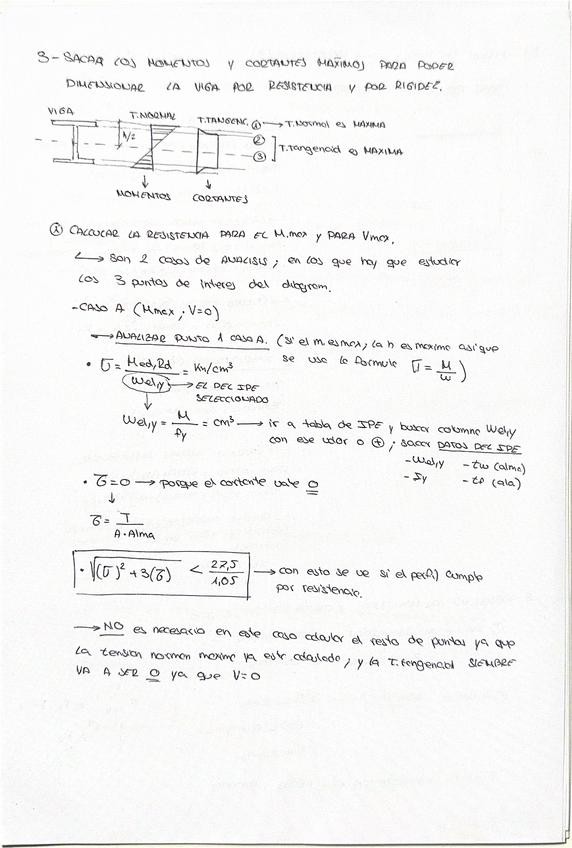 3- SACAR LOS MOMENTOS Y CORTANTES MAXIMOS PARA PODER
DIMENSIONAR LA VIGA POR RESISTENCIA Y POR RIGIDEZ.
VIGA
T.NORMAL
T.TANGENC.
h/2
① → T.Normal es MAXIMA
②
③
T.tangencial es MAXIMA
MOMENTOS
CORTANTES
① CALCULAR LA RESISTENCIA PARA EL M.max y PARA Vmax.
↳ son 2 casos de ANALISIS; en los que hay que estudiar
los 3 puntos de interes del diagram.
-CASO A (Mmax ; V=0)
→ ANALIZAR PUNTO 1 CASO A. (si el m. es max, la h es maxima asi que
se usa la formula σ = M/W)
• σ = Med,Rd / Wel,y = Kn/cm³
→ EL DEL IPE
SELECCIONADO
Wel,y = M/fy = cm³ → ir a tabla de IPE y buscar columna Wel,y
con ese valor o ⊕ ; sacar DATOS DEL IPE
-Wel,y -tw (alma)
-Iy -tf (ala)
• τ=0 → porque el cortante vale 0
↓
τ = T / A·Alma
• √(σ)² + 3(τ) < 27,5 / 1,05 → con esto se ve si el perfil cumple
por resistencia.
→ NO es necesario en este caso calcular el resto de puntos ya que
la tension normal maxima ya esta calculada; y la T.tangencial SIEMPRE
VA A SER 0 ya que V=0